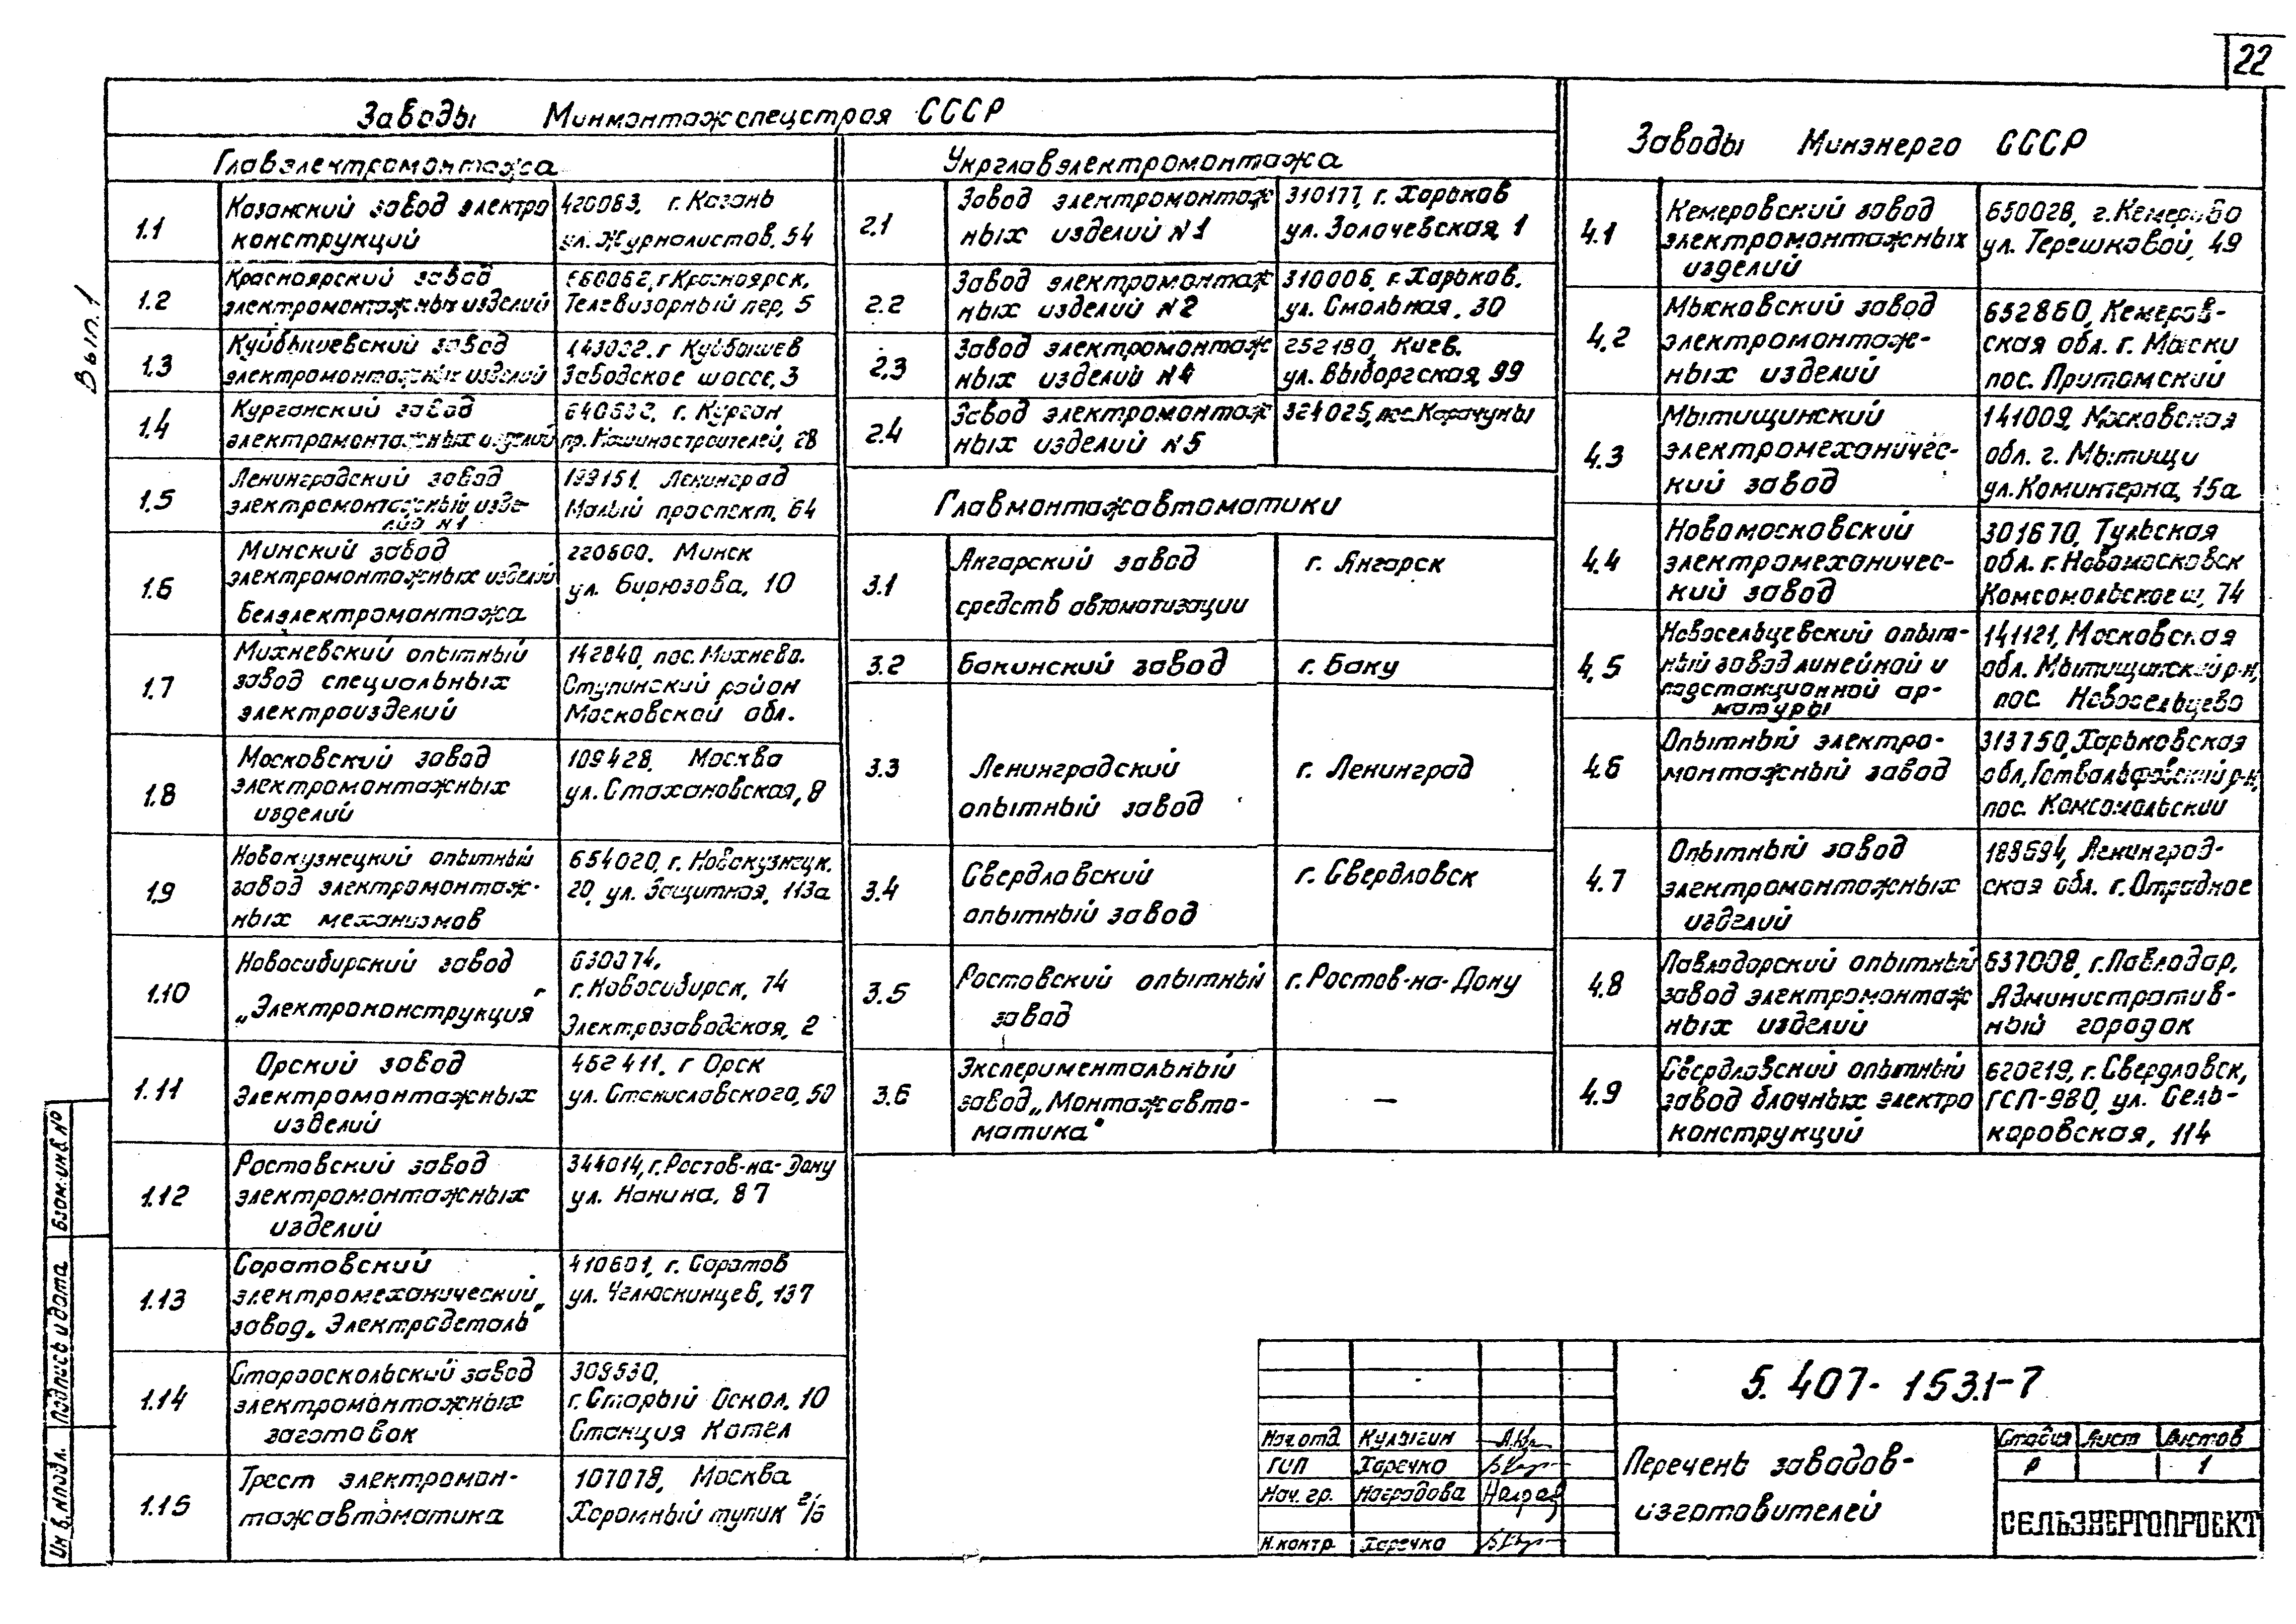 22
Вып. 1
Заводы Минмонтажспецстроя СССР
Главэлектромонтажа
1.1
Казанский завод электро
конструкций
420083, г. Казань
ул. Журналистов, 54
1.2
Красноярский завод
электромонтажных изделий
660062, г Красноярск,
Телевизорный пер, 5
1.3
Куйбышевский завод
электромонтажных изделий
г Куйбышев
Заводское шоссе, 3
1.4
Курганский завод
электромонтажных изделий
г. Курган
пр. Машиностроителей, 28
1.5
Ленинградский завод
электромонтажный изде-
лий №1
199151, Ленинград
Малый проспект, 64
1.6
Минский завод
электромонтажных изделий
Белэлектромонтажа
220600, Минск
ул. Бирюзова, 10
1.7
Михневский опытный
завод специальных
электроизделий
142840, пос. Михнево.
Ступинский район
Московской обл.
1.8
Московский завод
электромонтажных
изделий
109428, Москва
ул. Стахановская, 8
1.9
Новокузнецкий опытный
завод электромонтаж-
ных механизмов
654020, г. Новокузнецк,
20, ул. Защитная, 113а
1.10
Новосибирский завод
„Электроконструкция"
630074,
г. Новосибирск, 74
Электрозаводская, 2
1.11
Орский завод
Электромонтажных
изделий
462411, г Орск
ул. Станиславского, 50
1.12
Ростовский завод
электромонтажных
изделий
344014, г. Ростов-на-Дону
ул. Нанина, 87
1.13
Саратовский
электромеханический
завод „Электродеталь"
410601, г. Саратов
ул. Челюскинцев, 137
1.14
Старооскольский завод
электромонтажных
заготовок
309530,
г. Старый Оскол, 10
Станция Котел
1.15
Трест электромон-
тажавтоматика
107078, Москва
Хоромный тупик 2/6
Укрглавэлектромонтажа
2.1
Завод электромонтаж
ных изделий №1
310177, г. Харьков
ул. Золочевская, 1
2.2
Завод электромонтаж
ных изделий №2
310006, г. Харьков.
ул. Смольная, 30
2.3
Завод электромонтаж
ных изделий №4
252180, Киев.
ул. Выборгская, 99
2.4
Завод электромонтаж
ных изделий №5
324025, пос. Карачуны
Главмонтажавтоматики
3.1
Ангарский завод
средств автоматизации
г. Ангарск
3.2
Бакинский завод
г. Баку
3.3
Ленинградский
опытный завод
г. Ленинград
3.4
Свердловский
опытный завод
г. Свердловск
3.5
Ростовский опытный
завод
г. Ростов-на-Дону
3.6
Экспериментальный
завод „Монтажавто-
матика"
—
Заводы Минэнерго СССР
4.1
Кемеровский завод
электромонтажных
изделий
650028, г. Кемерово
ул. Терешковой, 49
4.2
Мысковский завод
электромонтаж-
ных изделий
652860, Кемеров-
ская обл. г. Мыски
пос. Притомский
4.3
Мытищинский
электромеханичес-
кий завод
141009, Московская
обл. г. Мытищи
ул. Коминтерна, 15а
4.4
Новомосковский
электромеханичес-
кий завод
301670, Тульская
обл. г. Новомосковск
Комсомольское ш, 74
4.5
Новосельцевский опыт-
ный завод линейной и
подстанционной ар-
матуры
141121, Московская
обл. Мытищинский р-н,
пос. Новосельцево
4.6
Опытный электро-
монтажный завод
313750, Харьковская
обл, Готвальдовский р-н,
пос. Комсомольский
4.7
Опытный завод
электромонтажных
изделий
Ленинград-
ская обл. г. Отрадное
4.8
Павлодарский опытный
завод электромонтаж
ных изделий
637008, г. Павлодар,
Административ-
ный городок
4.9
Свердловский опытный
завод блочных электро
конструкций
620219, г. Свердловск,
ГСП-980, ул. Сель-
коровская, 114
Инв. № подл.
Подпись и дата
Взам. инв №
Нач. отд Кулыгин
ГИП Харечко
Нач. гр. Наградова
Н. контр Харечко
5.407-153.1-7
Перечень заводов-
изготовителей
Стадия Лист Листов
Р 1
СЕЛЬЭНЕРГОПРОЕКТ